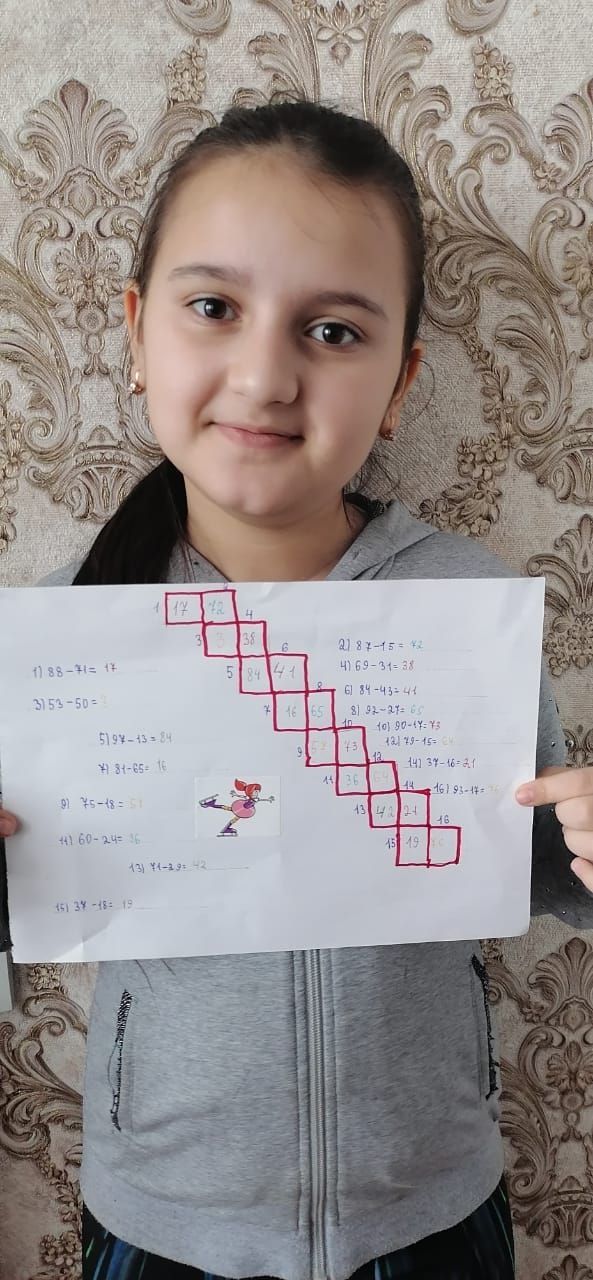 1 17 72
4
3 3 38
6
5 84 41
8
7 16 65
10
9 57 73
12
11 36 64
14
13 42 21
16
15 19
1) 88-71= 17
3) 53-50=
5) 97-13= 84
7) 81-65= 16
9) 75-18= 57
11) 60-24= 36
13) 71-29= 42
15) 37-18= 19
2) 87-15= 72
4) 69-31= 38
6) 84-43= 41
8) 92-27= 65
10) 90-17= 73
12) 79-15= 64
14) 37-16= 21
16) 93-17= 76